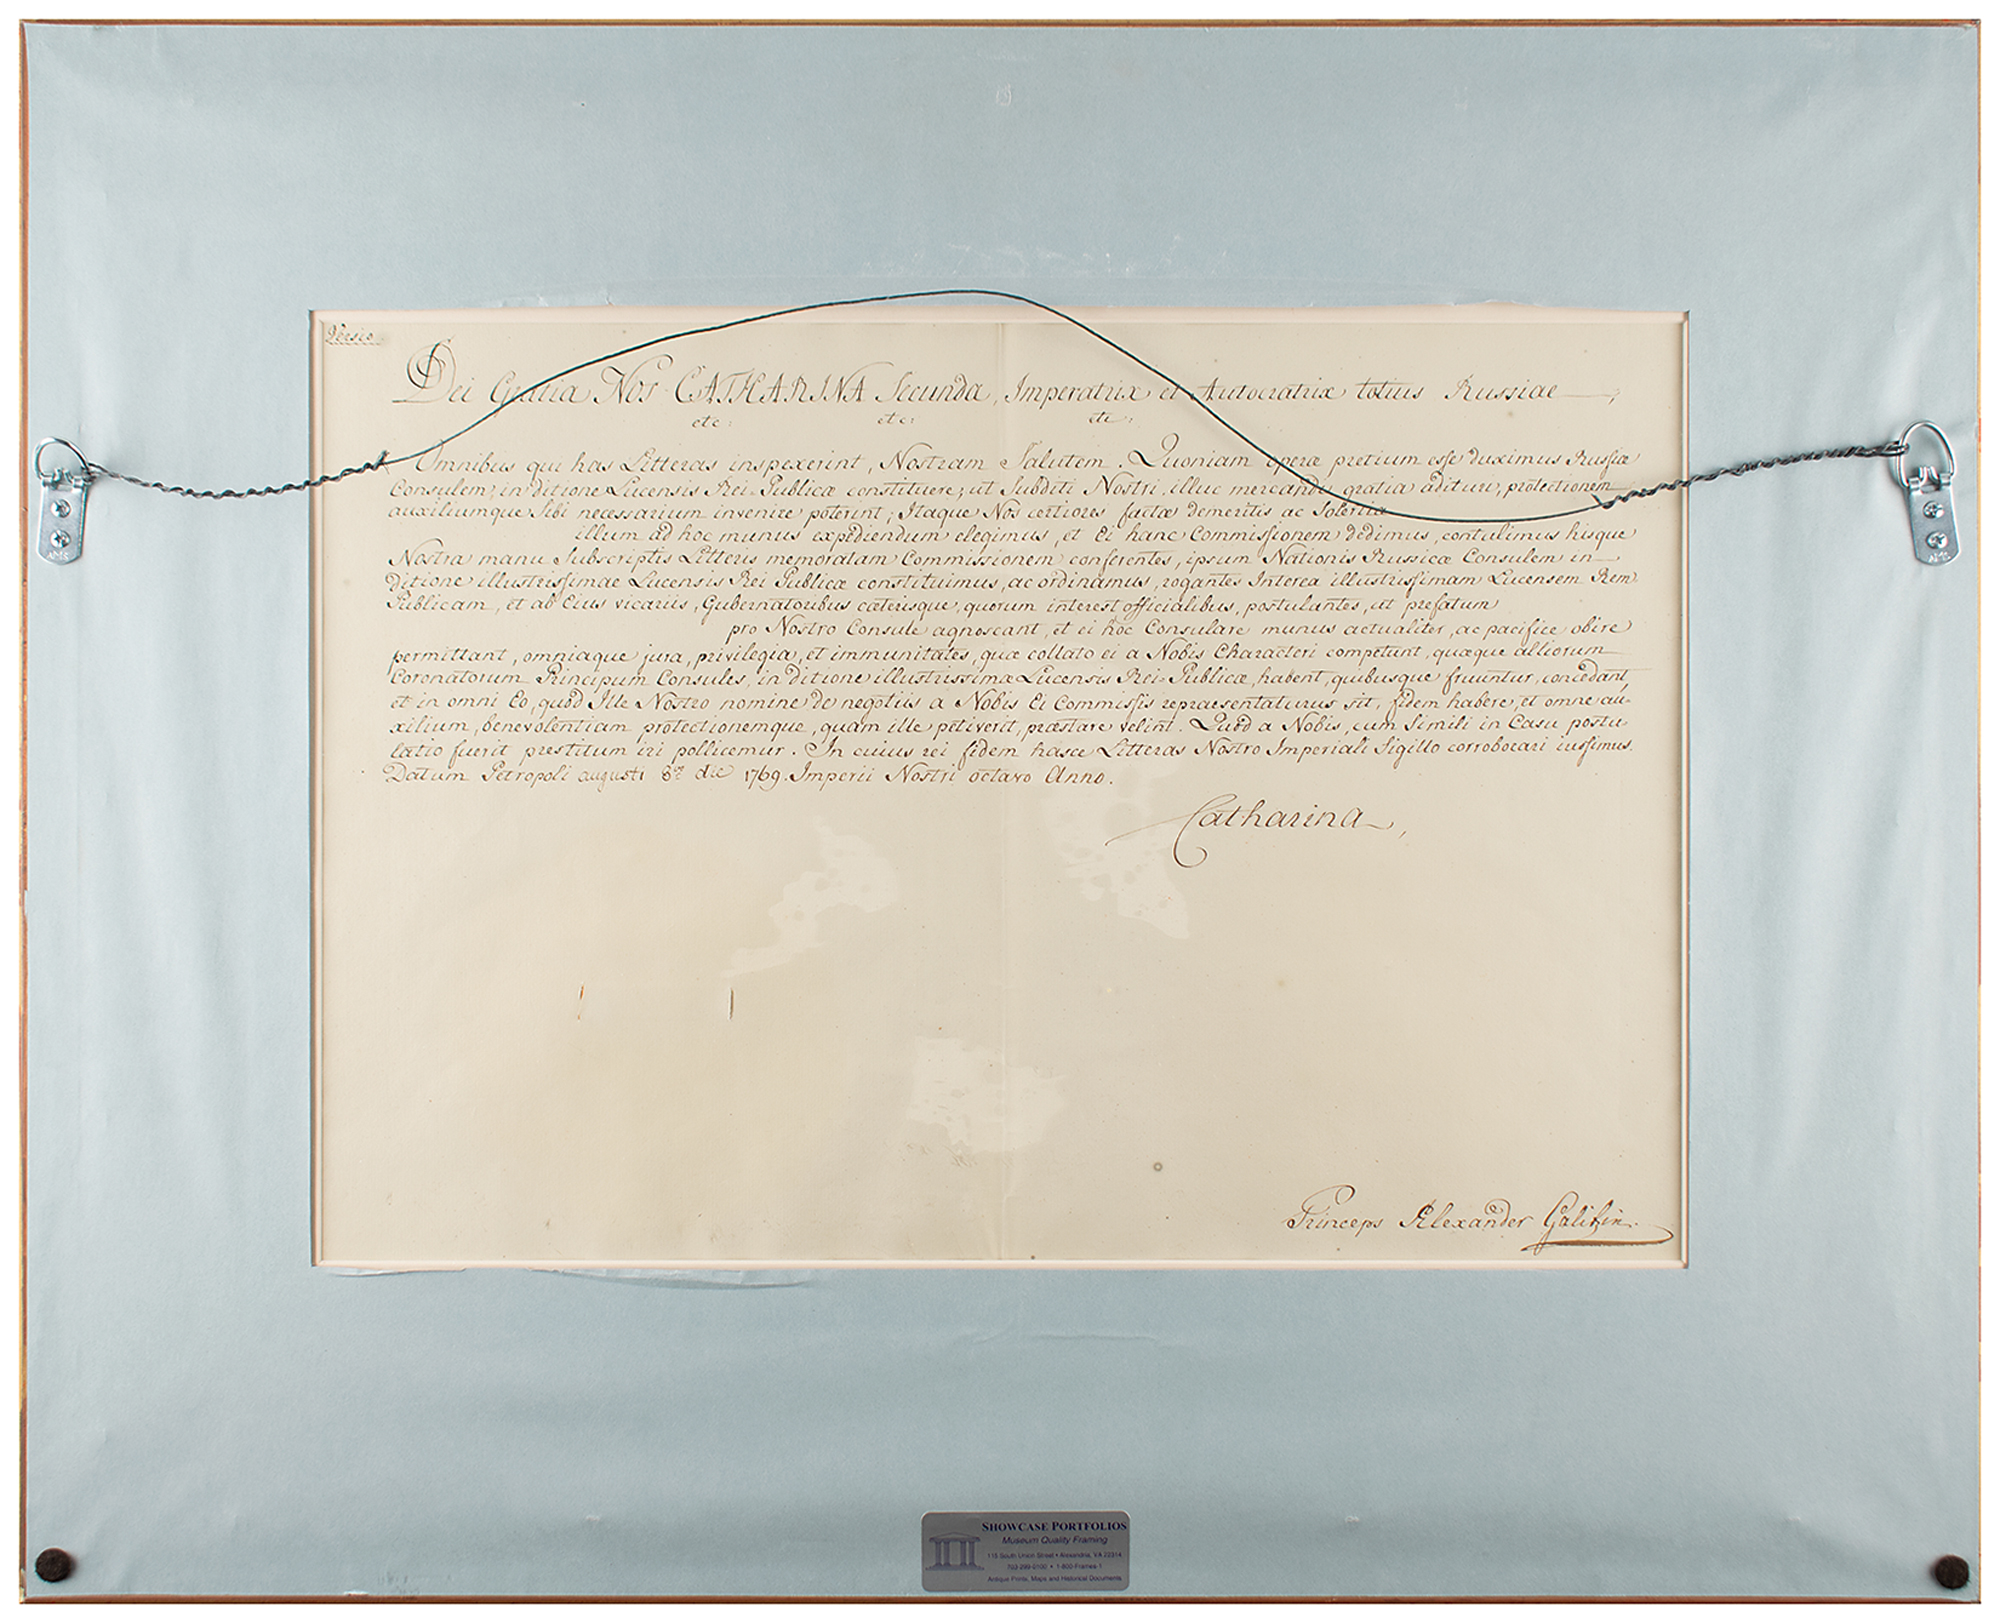 Versio
Dei Gratia Nos CATHARINA Secunda, Imperatrix et Autocratrix totius Russiae,
etc: etc: etc:
Omnibus qui has Litteras inspexerint, Nostram Salutem. Quoniam operæ pretium esse duximus Russiæ
Consulem, in ditione Lucensis Rei-Publicæ constituere; ut Subditi Nostri, illuc mercandi gratia adituri, protectionem
auxiliumque Sibi necessarium invenire poterint; Itaque Nos certiores factæ demeritis ac Solertia
illum ad hoc munus expediendum elegimus, et Ei hanc Commissionem dedimus, contulimus hisque
Nostra manu Subscriptis Litteris memoratam Commissionem conferentes, ipsum Nationis Russicæ Consulem in
ditione illustrissimae Lucensis Rei Publicæ constituimus, ac ordinamus, rogantes Interea illustrissimam Lucensem Rem
Publicam, et ab Eius vicariis, Gubernatoribus cæterisque, quorum interest officialibus, postulantes, ut prefatum
pro Nostro Consule agnoscant, et ei hoc Consulare munus actualiter, ac pacifice obire
permittant, omniaque jura, privilegia, et immunitates, quæ collato ei a Nobis Characteri competunt, quæque alliorum
Coronatorum Principum Consules, in ditione illustrissimæ Lucensis Rei-Publicæ, habent, quibusque fruuntur, concedant,
et in omni Eo, quod Ille Nostro nomine de negotiis a Nobis Ei Commissis repraesentaturus sit, fidem habere, et omne au-
xilium, benevolentiam protectionemque, quam ille petiverit, præstare velint. Quod a Nobis, cum Simili in Casu postu
latio fuerit prestitum iri pollicemur. In cuius rei fidem hasce Litteras Nostro Imperiali Sigillo corroborari iussimus.
Datum Petropoli augusti 8va die 1769. Imperii Nostri octavo Anno.
Catharina,
Princeps Alexander Galitzin.
SHOWCASE PORTFOLIOS
Museum Quality Framing
115 South Union Street • Alexandria, VA 22314
703-299-0100 • 1-800-Frames-1
Antique Prints, Maps and Historical Documents